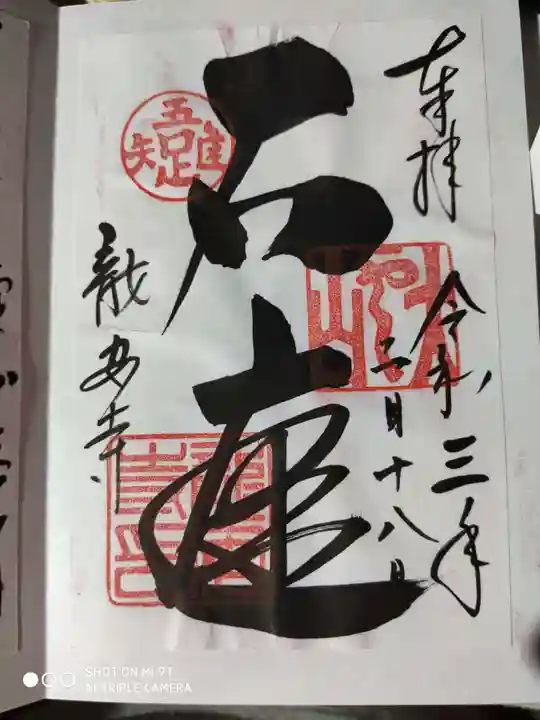 奉拝
令和三年
二月十八日
石庭
龍安寺
吾唯足知
SHOT ON MI 9T
AI TRIPLE CAMERA